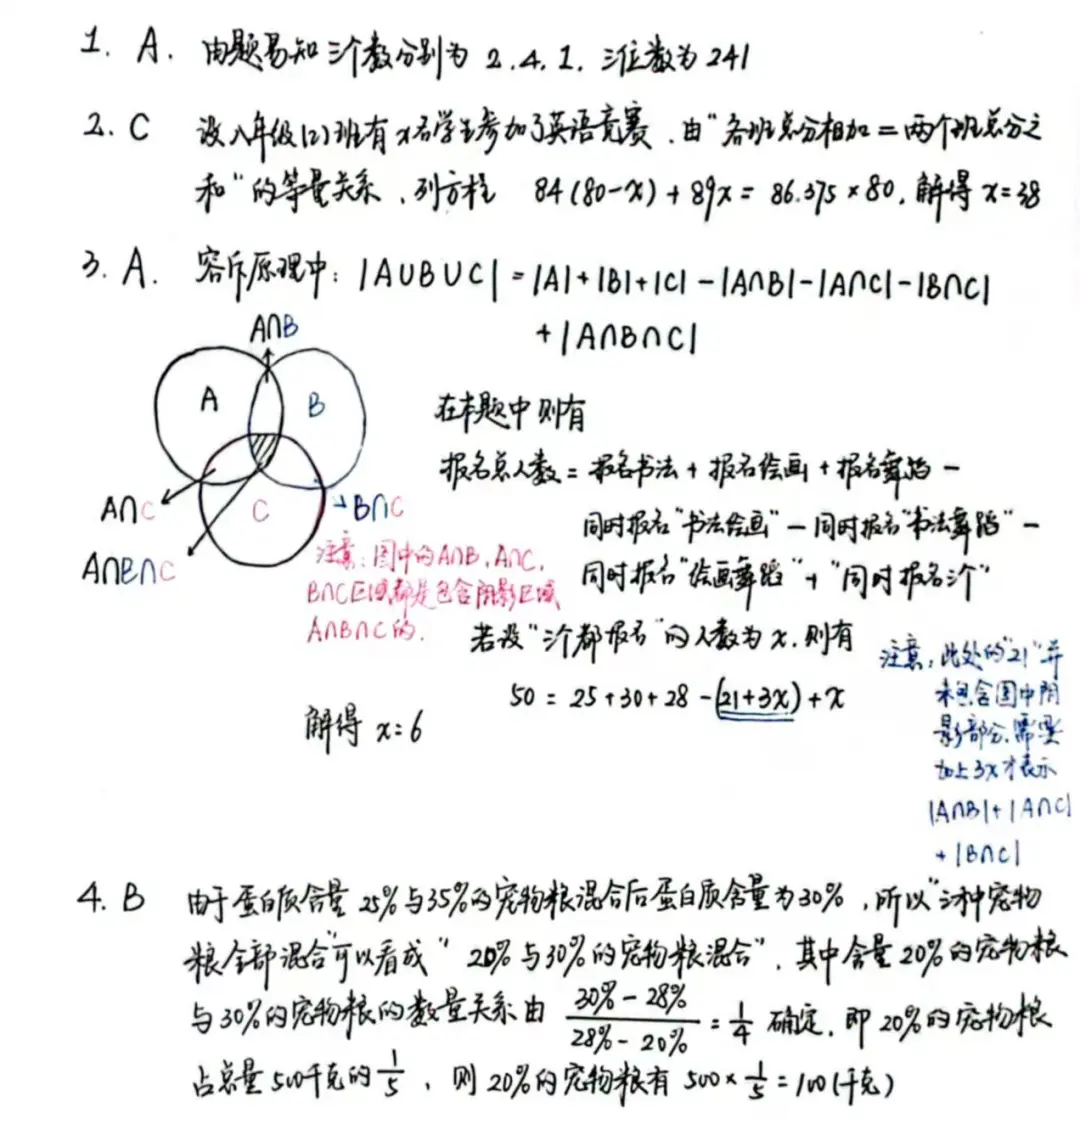 1. A. 由题易知三个数分别为 2.4.1. 三位数为 241
2. C 设八年级(2)班有x名学生参加了英语竞赛.由“各班总分相加=两个班总分之
和”的等量关系.列方程 84(80-x)+89x=86.375×80.解得 x=38
3. A. 容斥原理中: |A∪B∪C|=|A|+|B|+|C|-|A∩B|-|A∩C|-|B∩C|
+|A∩B∩C|
A∩B
A
B
C
A∩C
B∩C
A∩B∩C
注意:图中的A∩B.A∩C.
B∩C区域都是包含阴影区域
A∩B∩C的.
在本题中则有
报名总人数=报名书法+报名绘画+报名舞蹈-
同时报名“书法绘画”-同时报名“书法舞蹈”-
同时报名“绘画舞蹈”+“同时报名三个”
若设“三个都报名”的人数为x.则有
50=25+30+28-(21+3x)+x
解得 x=6
注意:此处的“21”并
未包含图中阴
影部分.需要
加上3x才表示
|A∩B|+|A∩C|
+|B∩C|
4. B 由于蛋白质含量 25%与35%的宠物粮混合后蛋白质含量为30%,所以“三种宠物
粮全部混合”可以看成“20%与30%的宠物粮混合”.其中含量20%的宠物粮
与30%的宠物粮的数量关系由 (30%-28%)/(28%-20%)=1/4 确定.即20%的宠物粮
占总量500千克的1/5,则20%的宠物粮有 500×1/5=100(千克)